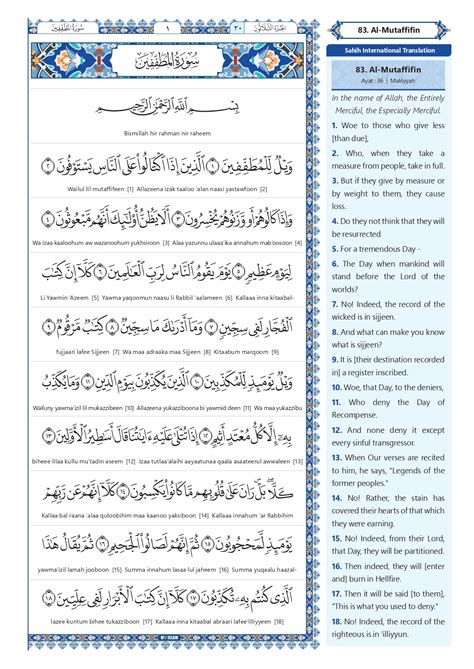 سُورَةُ المُطَفِّفِين
١
٣٠
الجُزْءُ الثَّلَاثُونَ
سُورَةُ المُطَفِّفِينَ
بِسْمِ اللَّهِ الرَّحْمَٰنِ الرَّحِيمِ
Bismillah hir rahman nir raheem
وَيْلٌ لِّلْمُطَفِّفِينَ ١ الَّذِينَ إِذَا اكْتَالُوا عَلَى النَّاسِ يَسْتَوْفُونَ ٢
Wailul lil mutaffifeen [1] Allazeena izak taaloo 'alan naasi yastawfoon [2]
وَإِذَا كَالُوهُمْ أَو وَّزَنُوهُمْ يُخْسِرُونَ ٣ أَلَا يَظُنُّ أُولَٰئِكَ أَنَّهُم مَّبْعُوثُونَ ٤
Wa izaa kaaloohum aw wazanoohum yukhsiroon [3] Alaa yazunnu ulaaa'ika annahum mab'oosoon [4]
لِيَوْمٍ عَظِيمٍ ٥ يَوْمَ يَقُومُ النَّاسُ لِرَبِّ الْعَالَمِينَ ٦ كَلَّا إِنَّ كِتَابَ
Li Yawmin 'Azeem [5] Yawma yaqoomun naasu li Rabbil 'aalameen [6] Kallaaa inna kitaabal-
الْفُجَّارِ لَفِي سِجِّينٍ ٧ وَمَا أَدْرَاكَ مَا سِجِّينٌ ٨ كِتَابٌ مَّرْقُومٌ ٩
fujjaari lafee Sijjeen [7] Wa maa adraaka maa Sijjeen [8] Kitaabum marqoom [9]
وَيْلٌ يَوْمَئِذٍ لِّلْمُكَذِّبِينَ ١٠ الَّذِينَ يُكَذِّبُونَ بِيَوْمِ الدِّينِ ١١ وَمَا يُكَذِّبُ
Wailuny yawma'izil lil mukazzibeen [10] Allazeena yukazziboona bi yawmid deen [11] Wa maa yukazzibu
بِهِ إِلَّا كُلُّ مُعْتَدٍ أَثِيمٍ ١٢ إِذَا تُتْلَىٰ عَلَيْهِ آيَاتُنَا قَالَ أَسَاطِيرُ الْأَوَّلِينَ ١٣
biheee illaa kullu mu'tadin aseem [12] Izaa tutlaa'alaihi aayaatunaa qaala asaateerul awwaleen [13]
كَلَّا ۖ بَلْ ۜ رَانَ عَلَىٰ قُلُوبِهِم مَّا كَانُوا يَكْسِبُونَ ١٤ كَلَّا إِنَّهُمْ عَن رَّبِّهِمْ
Kallaa bal raana 'alaa quloobihim maa kaanoo yaksiboon [14] Kallaaa innahum 'ar Rabbihim
يَوْمَئِذٍ لَّمَحْجُوبُونَ ١٥ ثُمَّ إِنَّهُمْ لَصَالُو الْجَحِيمِ ١٦ ثُمَّ يُقَالُ هَٰذَا
yawma'izil lamah joobon [15] Summa innahum lasaa lul jaheem [16] Summa yuqaalu haazal-
الَّذِي كُنتُم بِهِ تُكَذِّبُونَ ١٧ كَلَّا إِنَّ كِتَابَ الْأَبْرَارِ لَفِي عِلِّيِّينَ ١٨
lazee kuntum bihee tukazziboon [17] Kallaaa inna kitaabal abraari lafee'illiyyeen [18]
83. Al-Mutaffifin
Sahih International Translation
83. Al-Mutaffifin
Ayat : 36 | Makiyyah
In the name of Allah, the Entirely
Merciful, the Especially Merciful.
1. Woe to those who give less
[than due],
2. Who, when they take a
measure from people, take in full.
3. But if they give by measure or
by weight to them, they cause
loss.
4. Do they not think that they will
be resurrected
5. For a tremendous Day -
6. The Day when mankind will
stand before the Lord of the
worlds?
7. No! Indeed, the record of the
wicked is in sijjeen.
8. And what can make you know
what is sijjeen?
9. It is [their destination recorded
in] a register inscribed.
10. Woe, that Day, to the deniers,
11. Who deny the Day of
Recompense.
12. And none deny it except
every sinful transgressor.
13. When Our verses are recited
to him, he says, "Legends of the
former peoples."
14. No! Rather, the stain has
covered their hearts of that which
they were earning.
15. No! Indeed, from their Lord,
that Day, they will be partitioned.
16. Then indeed, they will [enter
and] burn in Hellfire.
17. Then it will be said [to them],
"This is what you used to deny."
18. No! Indeed, the record of the
righteous is in 'illiyyun.